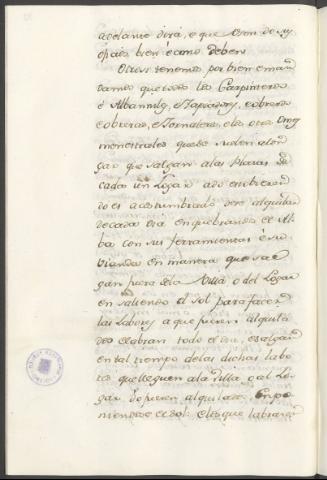 adelante dirá, e que usen de sus
ofizios bien e como deben
Otrosi tenemos por bien e man
damos que todos los Carpinteros
e Albanniles, e Tapiadores, e obreros
e obreras, e Jornaleros, e los otros
menestrales que se suelen alqui
lar que salgan a las Plazas de
cada un Lugar ado estubieren
do es acostumbrado de se alquilar
de cada dia en quebrando el Al
ba con sus ferramientas e su
viandas en manera que sal
gan fuera de la Villa o del Lugar
en saliendo el sol para facer
las labores a que fueren alquila
dos e labran todo el dia, e salgan
en tal tiempo de las dichas labo
res que lleguen a la Villa o al Lu
gar do fueren alquilados en po
niendose el sol. e los que labraren